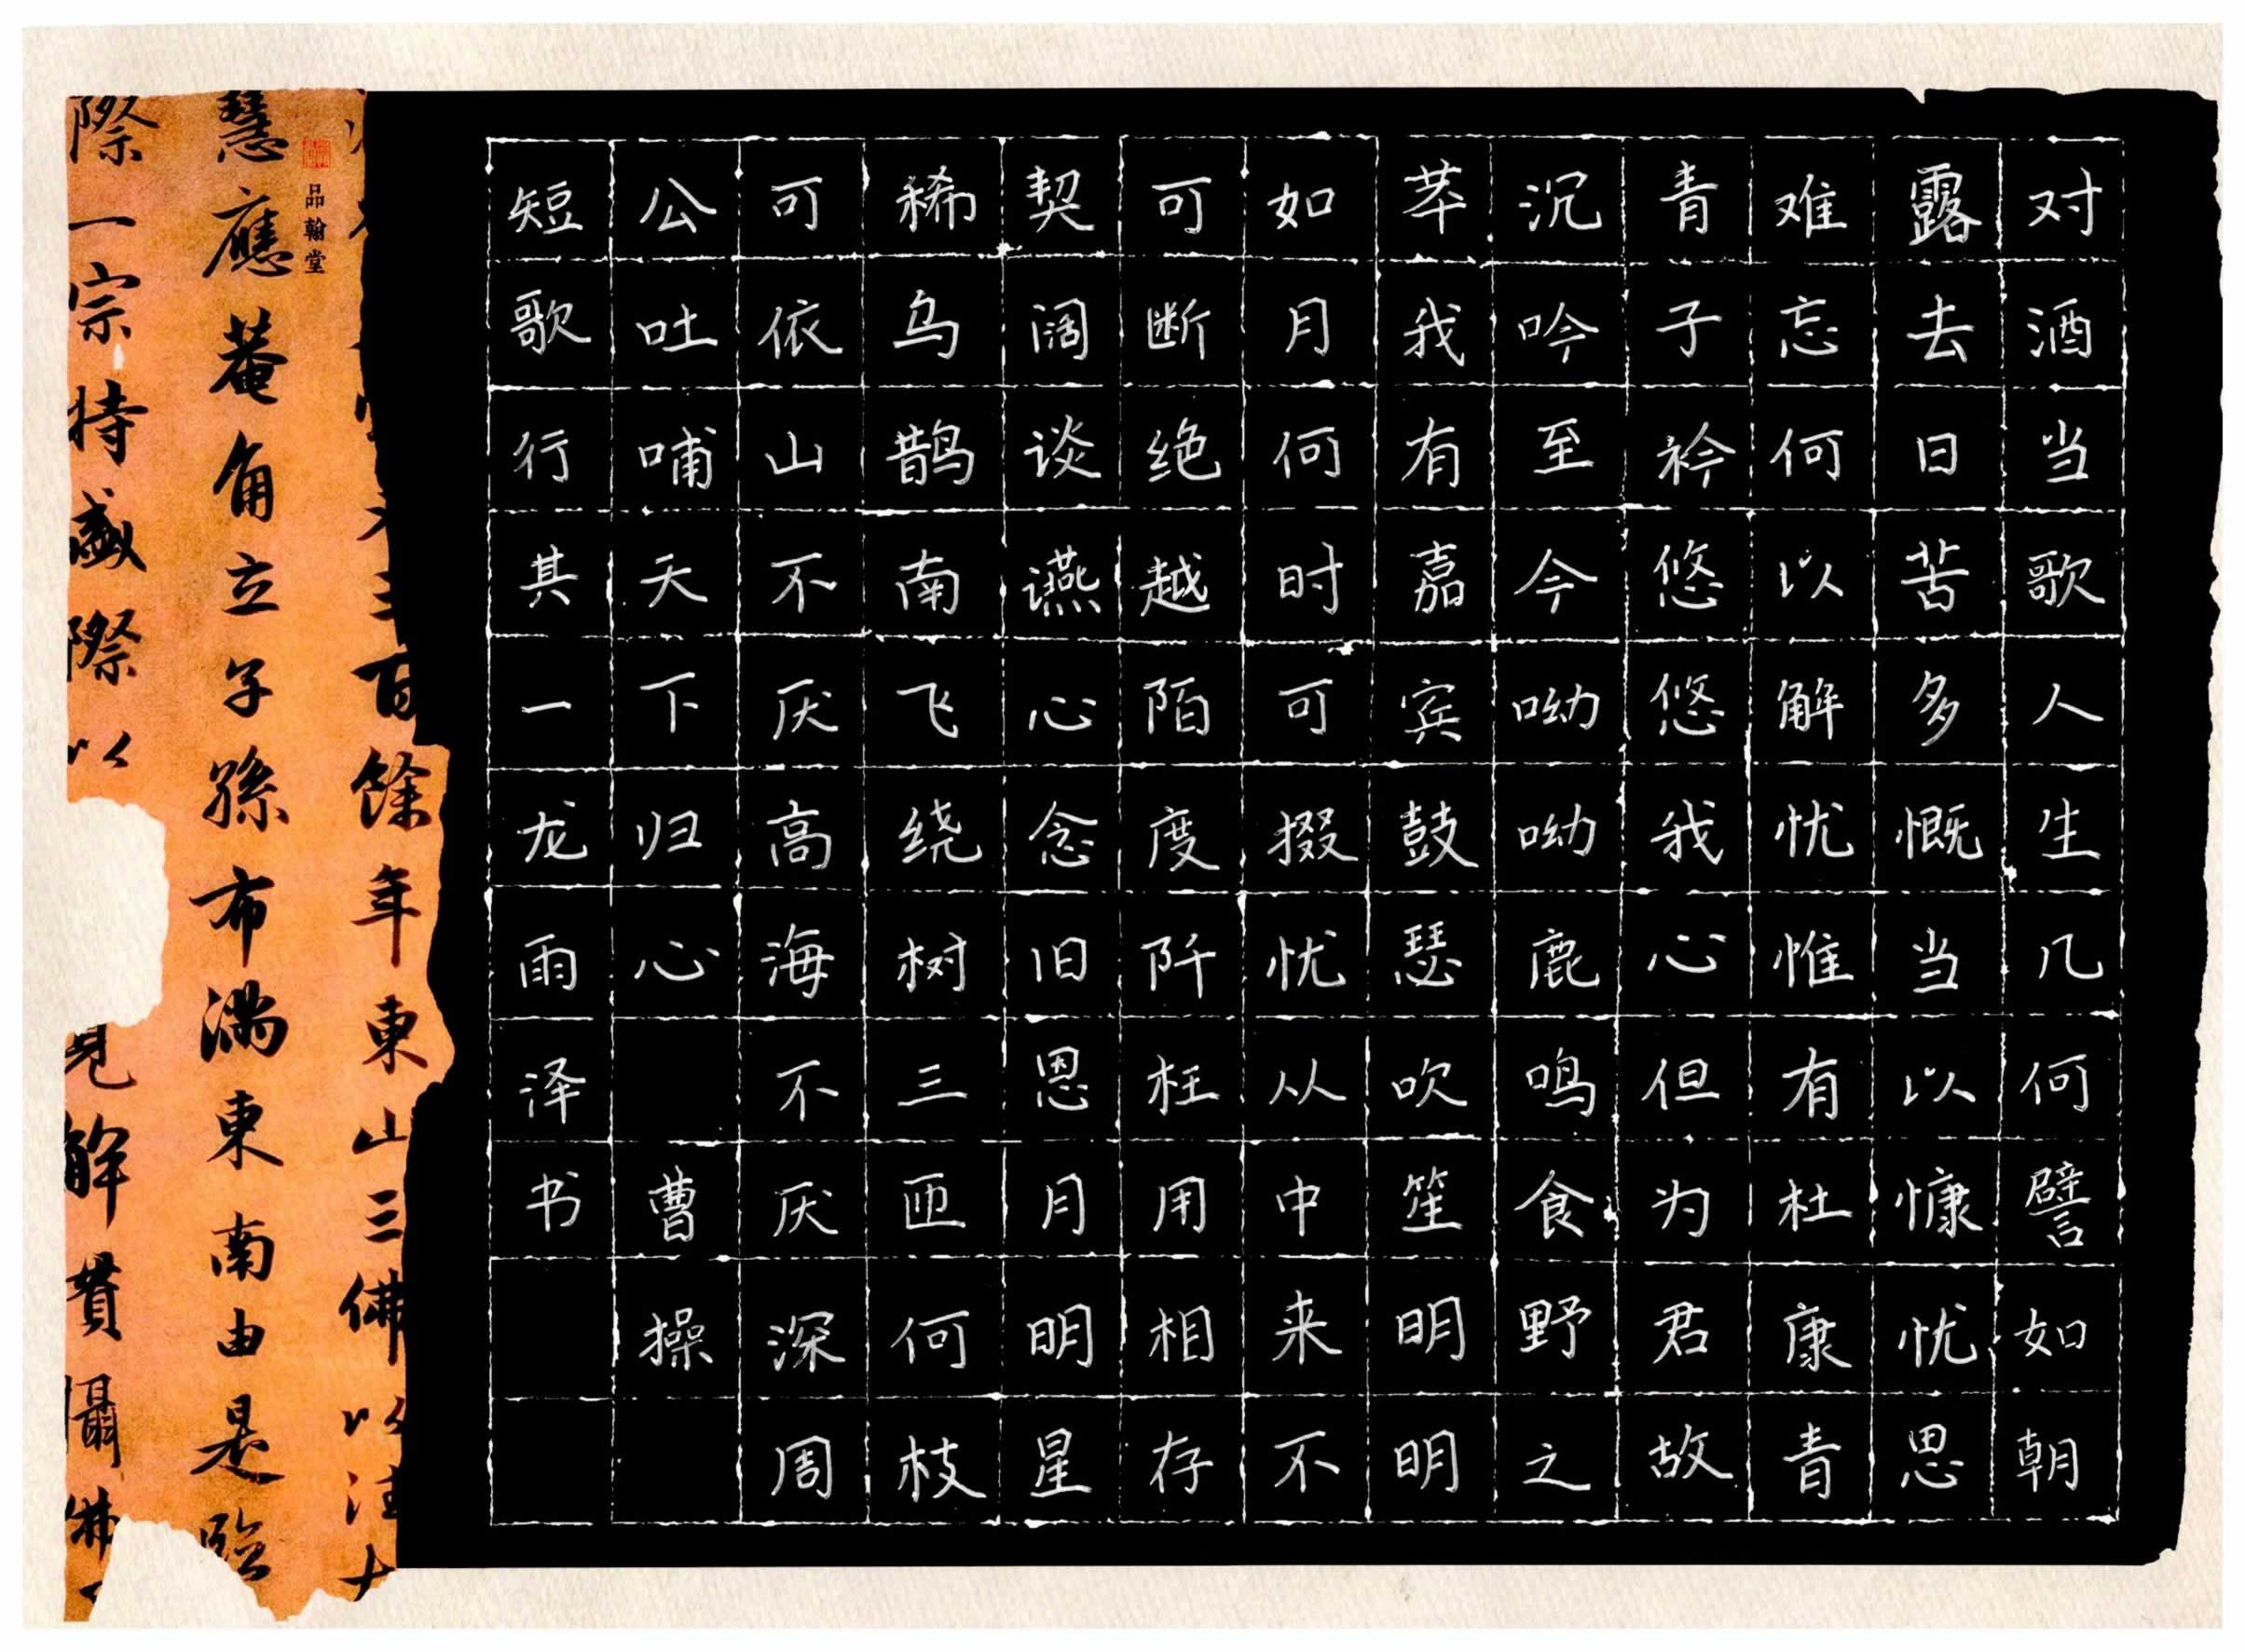 对酒当歌人生几何譬如朝
露去日苦多慨当以慷忧思
难忘何以解忧惟有杜康青
青子衿悠悠我心但为君故
沉吟至今呦呦鹿鸣食野之
苹我有嘉宾鼓瑟吹笙明明
如月何时可掇忧从中来不
可断绝越陌度阡枉用相存
契阔谈䜩心念旧恩月明星
稀乌鹊南飞绕树三匝何枝
可依山不厌高海不厌深周
公吐哺天下归心 曹操
短歌行其一龙雨泽书
百餘年東山三佛以
品翰堂
慧應菴角立子孫布滿東南由是臨
際一宗特盛際以 見解貫攝佛